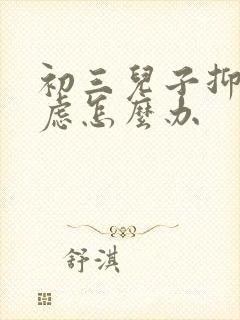 初三兒子抑
慮怎麼办
舒淇